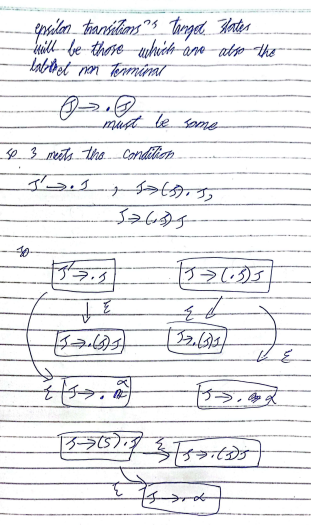 epsilon transitions's target states
will be those which are also the
labeled non terminal
S → . S
must be same
so 3 meets the condition
S' → . S , S → (S) . S,
S → (. S) S
so
S' → . S    S → (. S) S
ε    ε
S → . (S) S    S → . (S) S
ε
ε S → . α    S → . α
S → (S) . S ε S → . (S) S
ε S → . α